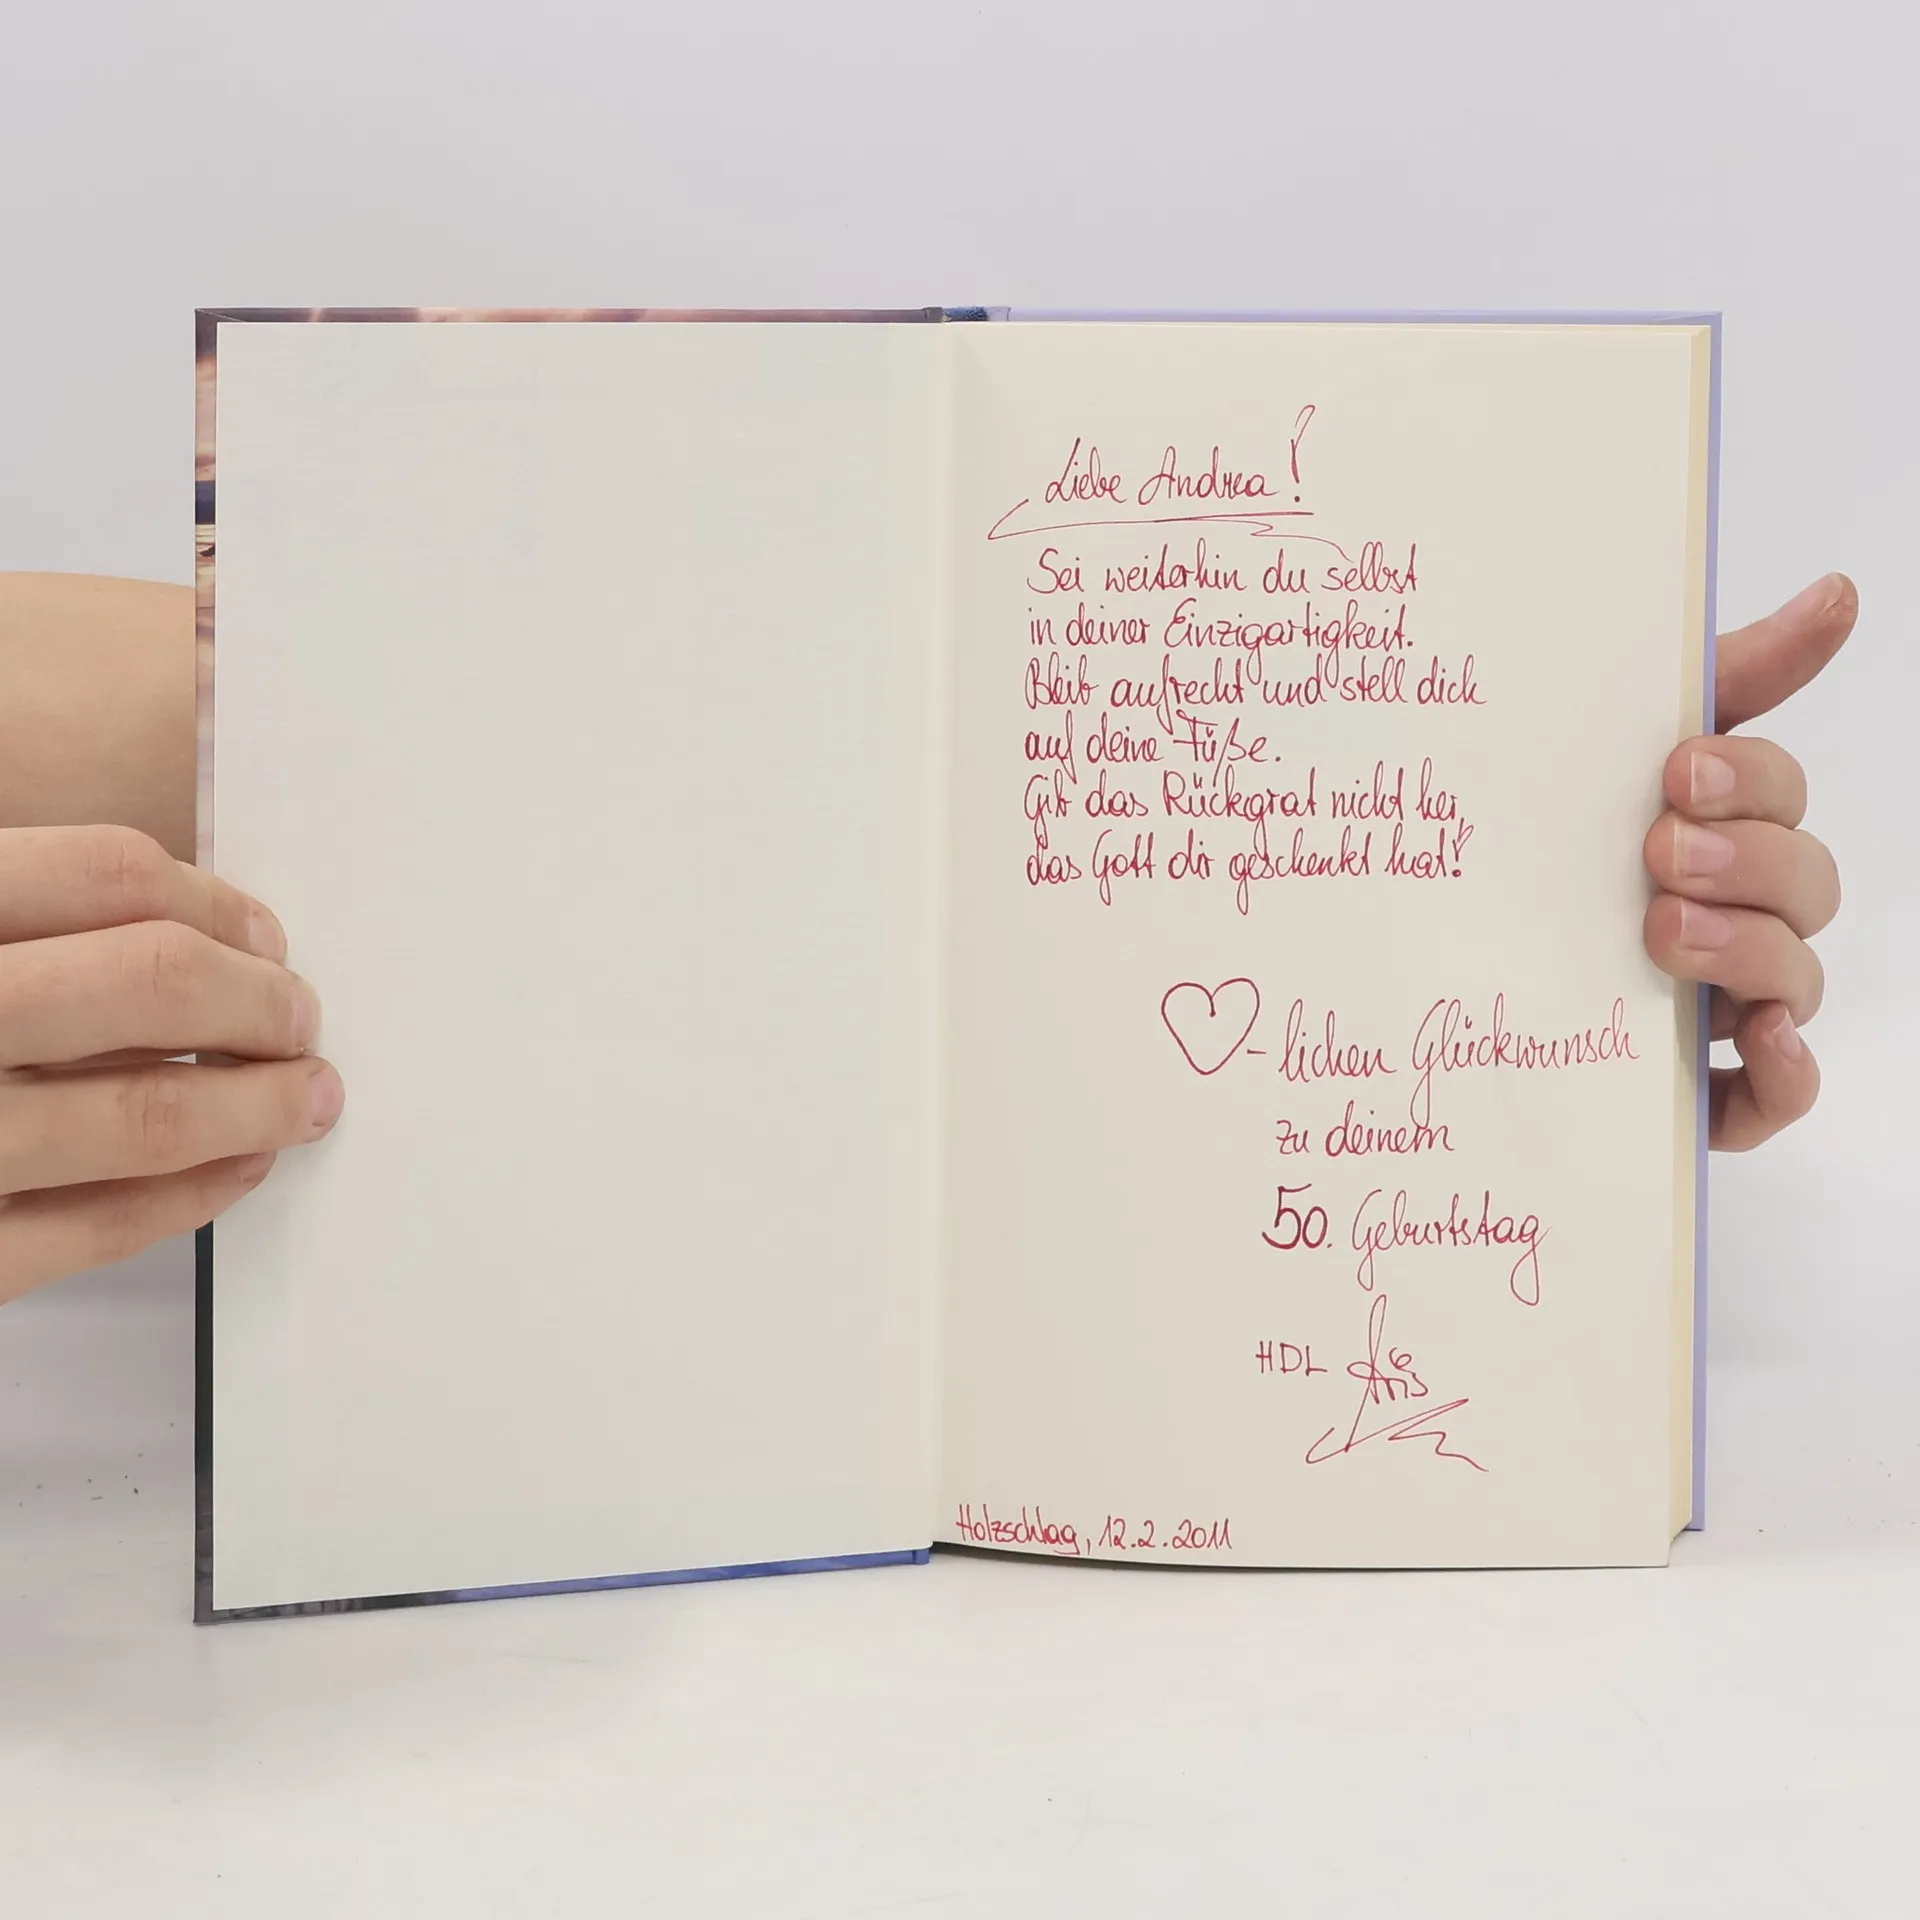 Liebe Andrea!
Sei weiterhin du selbst
in deiner Einzigartigkeit.
Bleib aufrecht und stell dich
auf deine Füße.
Gib das Rückgrat nicht her,
das Gott dir geschenkt hat!
-lichen Glückwunsch
zu deinem
50. Geburtstag
HDL
Holzschlag, 12.2.2011